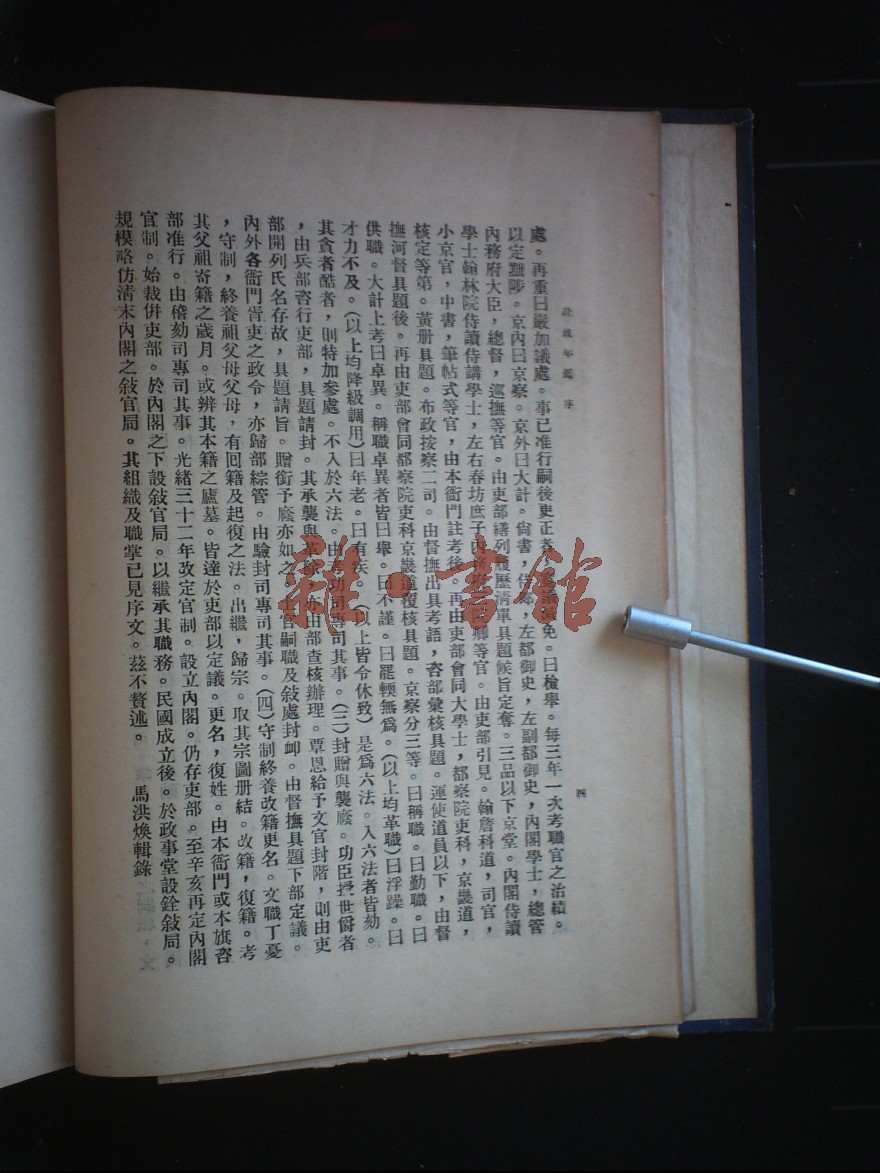 銓敘年鑑 序
四
處。再重曰嚴加議處。事已准行嗣後更正者
免。曰檢舉。每三年一次考職官之治績。
以定黜陟。京內曰京察。京外曰大計。尙書，侍郎，左都御史，左副都御史，內閣學士，總管
內務府大臣，總督，巡撫等官。由吏部繕列履歷清單具題候旨定奪。三品以下京堂。內閣侍讀
學士翰林院侍讀侍講學士，左右春坊庶子內務府
卿等官。由吏部引見。翰詹科道，司官，
小京官，中書，筆帖式等官，由本衙門註考後。再由吏部會同大學士，都察院吏科，京畿道，
核定等第。黃册具題。布政按察二司。由督撫出具考語，咨部彙核具題。運使道員以下，由督
撫河督具題後。再由吏部會同都察院吏科京畿道覆核具題。京察分三等。曰稱職。曰勤職。曰
供職。大計上考曰卓異。稱職卓異者皆曰舉。曰不謹。曰罷輭無爲。（以上均革職）曰浮躁。曰
才力不及。（以上均降級調用）曰年老。曰有疾。（以上皆令休致）是爲六法。入六法者皆劾。
其貪者酷者，則特加參處。不入於六法。由考功司專司其事。（三）封贈與襲廕。功臣授世爵者
，由兵部咨行吏部，具題請封。其承襲與革除，亦由部查核辦理。覃恩給予文官封階，則由吏
部開列氏名存故，具題請旨。贈銜予廕亦如之。土官嗣職及敍處封卹。由督撫具題下部定議。
內外各衙門胥吏之政令，亦歸部綜管。由驗封司專司其事。（四）守制終養改籍更名。文職丁憂
，守制，終養祖父母父母，有回籍及起復之法。出繼，歸宗。取其宗圖册結。改籍，復籍。考
其父祖寄籍之歲月。或辨其本籍之廬墓。皆達於吏部以定議。更名，復姓。由本衙門或本旗咨
部准行。由稽勳司專司其事。光緒三十二年改定官制。設立內閣。仍存吏部。至辛亥再定內閣
官制。始裁併吏部。於內閣之下設敍官局。以繼承其職務。民國成立後。於政事堂設銓敍局。
規模略仿清末內閣之敍官局。其組織及職掌已見序文。茲不贅述。 馬洪煥輯錄
雜·書館